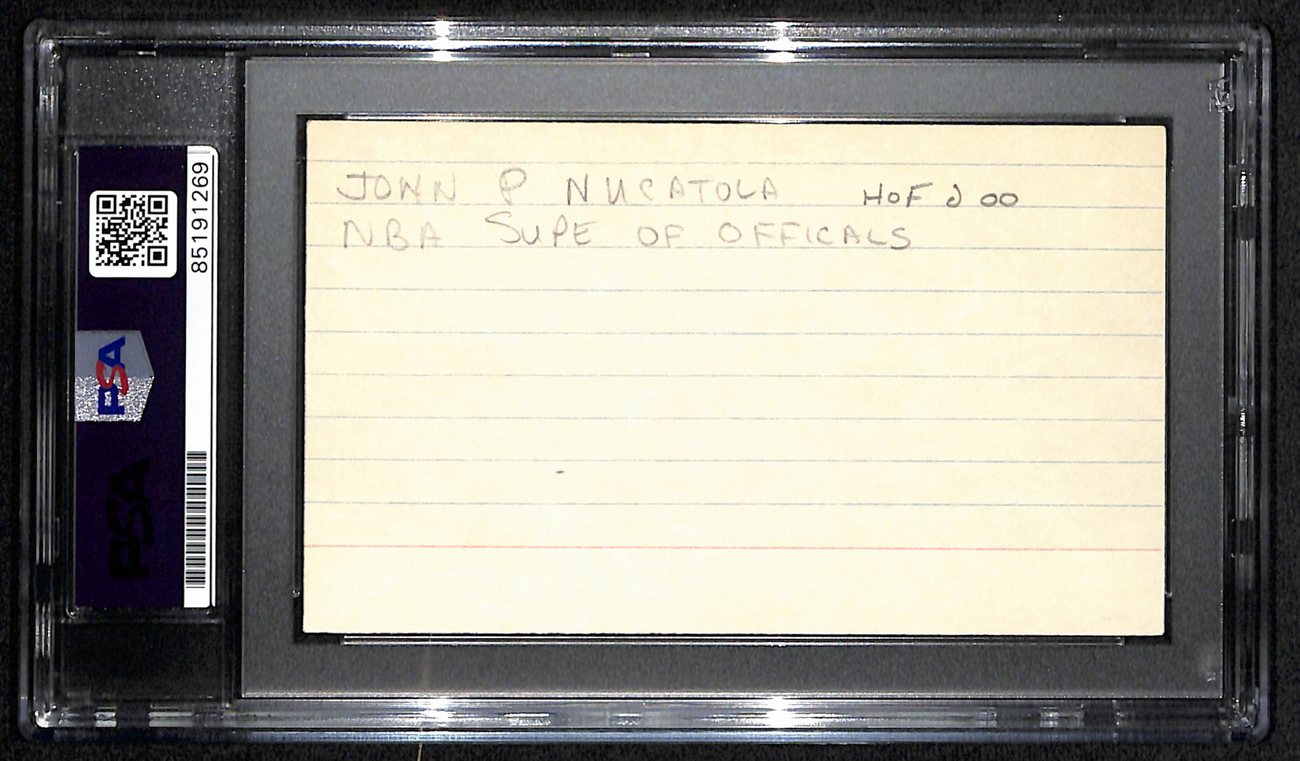 JOHN P NUCATOLA HOF d 00
NBA SUPE OF OFFICALS
85191269
PSA
PSA